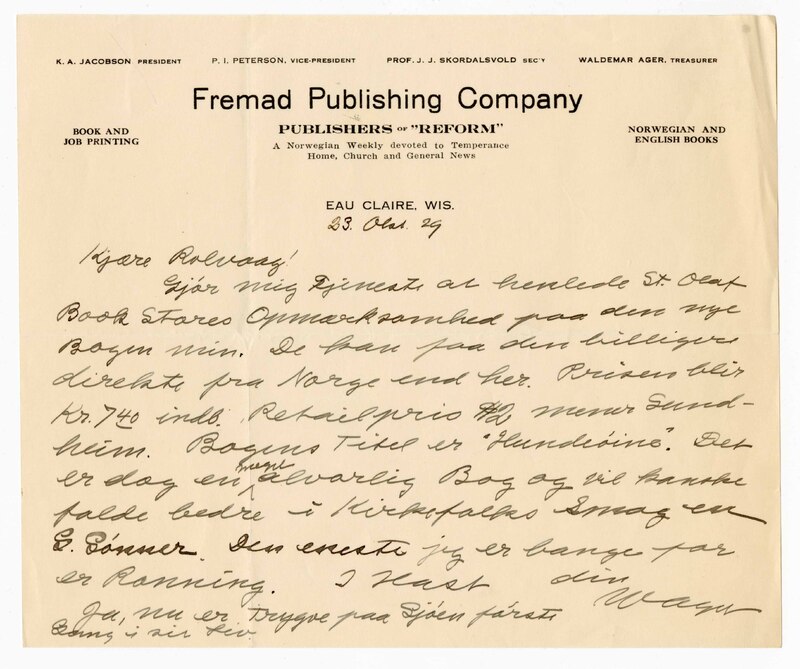 K. A. JACOBSON PRESIDENT P. I. PETERSON, VICE-PRESIDENT PROF. J. J. SKORDALSVOLD SEC'Y WALDEMAR AGER, TREASURER
Fremad Publishing Company
BOOK AND
JOB PRINTING
PUBLISHERS OF "REFORM"
A Norwegian Weekly devoted to Temperance
Home, Church and General News
NORWEGIAN AND
ENGLISH BOOKS
EAU CLAIRE, WIS.
23. Okt. 29
Kjære Rolvaag!
Gjør mig Tjeneste at henlede St. Olaf
Book Stores Opmærksomhed paa den nye
Bogen min. De kan faa den billigere
direkte fra Norge end her. Prisen blir
Kr. 7 40 indb. Retailpris $2 mener Sund-
heim. Bogens Titel er "Hundeøine". Det
er dog en meget alvorlig Bog og vil kanske
falde bedre i Kirkefolks Smag en
G. Sønner. Den eneste jeg er bange for
er Ronning. I Hast din
W Ager
Ja, nu er Trygve paa Sjøen første
Gang i sit Liv.